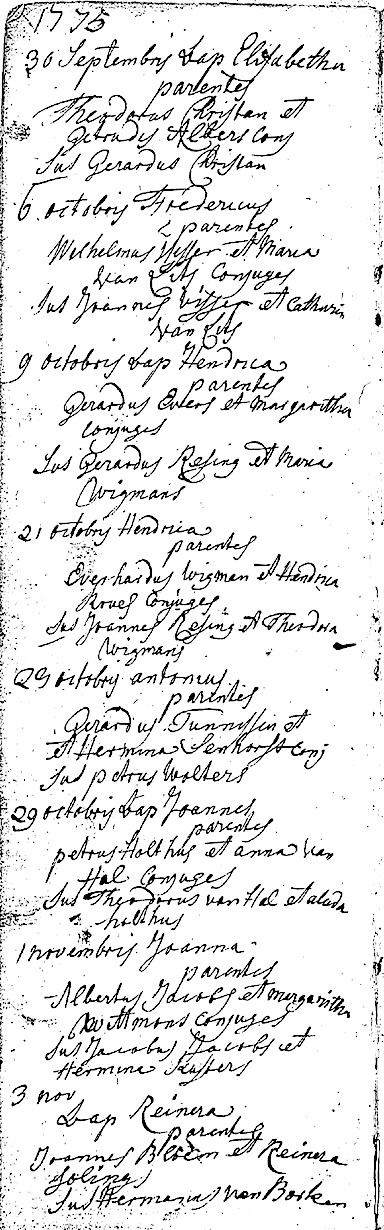 1775
30 Septembris bap Elisabetha
parentes
Theodorus Christan et
Getrudis Albers Conj
Sus Gerardus Christan
6 octobris Fredericus
parentes
Wilhelmus Visser et Maria
Van Eits Conjuges
Sus Joannes Visser et Catharin
Van Eits
9 octobris bap Hendrica
parentes
Gerardus Evers et Margaritha
conjuges
Sus Gerardus Resing et Maria
Wigmans
21 octobris Hendrica
parentes
Everhardus Wigman et Hendrica
Roves Conjuges
Sus Joannes Resing et Theodora
Wigmans
23 octobris antonius
parentes
Gerardus Tunnissin et
et Hermina Senhorst Conj
Sus petrus Wolters
29 octobris bap Joannes
parentes
petrus Holthus et anna van
Hal Conjuges
Sus Theodorus van Hal et alida
holthus
1 novembris Joanna
parentes
Albertus Jacobs et margaritha
Wittmons Conjuges
Sus Jacobus Jacobs et
Hermina Kusters
3 nov
bap Reinera
parentes
Joannes Bloem et Reinera
Soling
Sus Hermanus van Borken